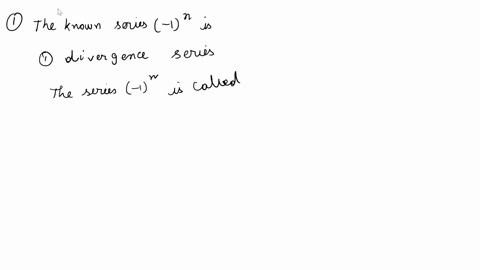 ① The known series (-1)^n is
① divergence series
The series (-1)^n is called